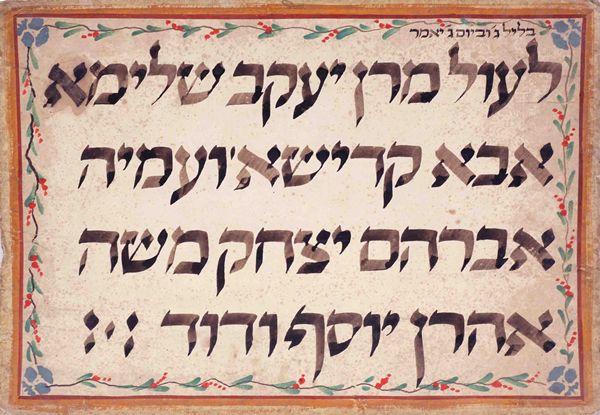 בליל ג׳ וביום ג׳ יאמר
לעול מרן יעקב שלימא
אבא קדישא ועמיה
אברהם יצחק משה
אהרן יוסף ודוד :·: